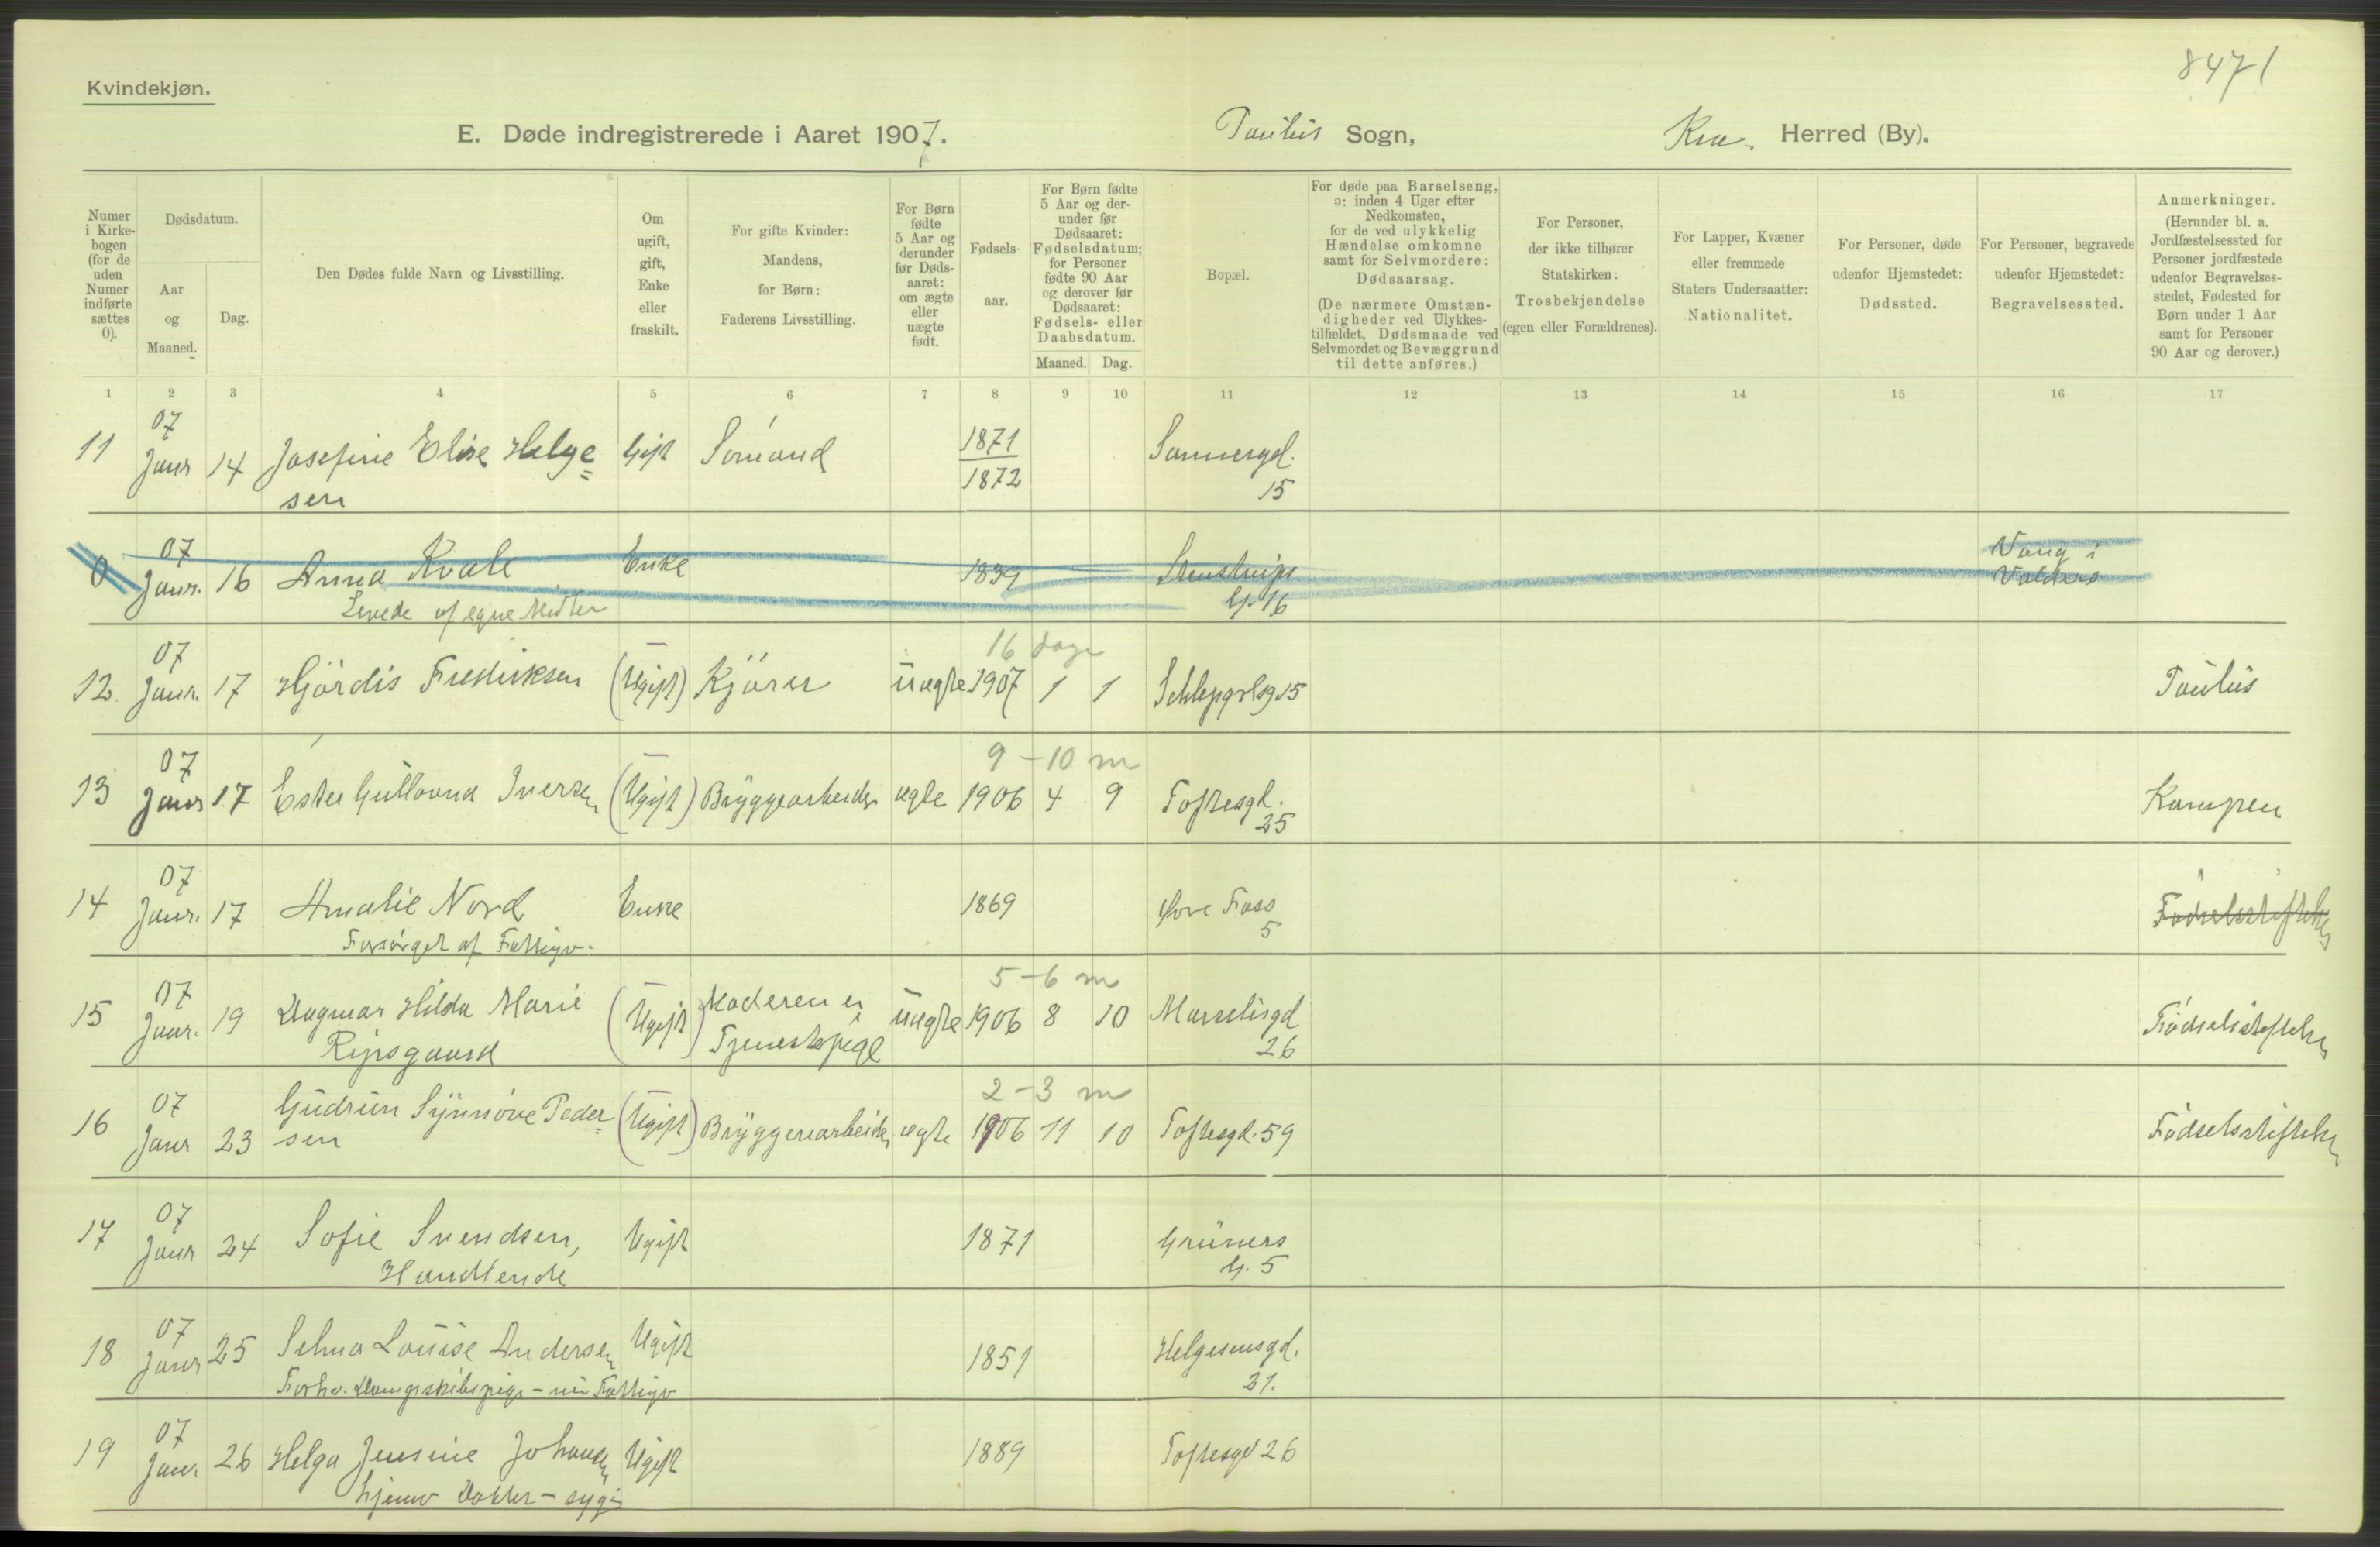 8471
Kvindekjøn.
E. Døde indregistrerede i Aaret 1907. Paulus Sogn, Kra. Herred (By).
Numer i Kirkebogen (for de uden Numer indførte sættes 0).
Dødsdatum.
Aar og Maaned.
Dag.
Den Dødes fulde Navn og Livsstilling.
Om ugift, gift, Enke eller fraskilt.
For gifte Kvinder: Mandens, for Børn: Faderens Livsstilling.
For Børn fødte 5 Aar og derunder før Dødsaaret: om ægte eller uægte født.
Fødselsaar.
For Børn fødte 5 Aar og derunder før Dødsaaret: Fødselsdatum; for Personer fødte 90 Aar og derover før Dødsaaret: Fødsels- eller Daabsdatum.
Maaned. Dag.
Bopæl.
For døde paa Barselseng, ɔ: inden 4 Uger efter Nedkomsten, for de ved ulykkelig Hændelse omkomne samt for Selvmordere: Dødsaarsag.
(De nærmere Omstændigheder ved Ulykkestilfældet, Dødsmaade ved Selvmordet og Bevæggrund til dette anføres.)
For Personer, der ikke tilhører Statskirken: Trosbekjendelse (egen eller Forældrenes).
For Lapper, Kvæner eller fremmede Staters Undersaatter: Nationalitet.
For Personer, døde udenfor Hjemstedet: Dødssted.
For Personer, begravede udenfor Hjemstedet: Begravelsessted.
Anmerkninger.
(Herunder bl. a. Jordfæstelsessted for Personer jordfæstede udenfor Begravelsesstedet, Fødested for Børn under 1 Aar samt for Personer 90 Aar og derover.)
1 2 3 4 5 6 7 8 9 10 11 12 13 14 15 16 17
07
11 Janr 14 Josefine Elise Helge= Gift Sømand 1871 Sannergd.
sen 1872 15
07 Vang i
0 Janr. 16 Anna Kvale Enke 1839 Stenstrups Valders
Levede af egne Midler G. 16
07 16 dage
12. Janr. 17 Hjördis Fredriksen (Ugift) Kjörer uægte 1907 1 1 Schleppgrlsg 15 Paulus
07 9-10 m
13 Janr 17 Ester Gullovna Iversen (Ugift) Bryggearbeider ægte 1906 4 9 Toftesgd. Kampen
25
07
14 Janr. 17 Amalie Nord Enke 1869 Øvre Foss Fødselsstiftelsen
Forsörget af Fattigv. 5
07 5-6 m
15 Janr. 19 Dagmar Hilda Marie (Ugift) Moderen er uægte 1906 8 10 Marselisgd Fødselsstiftelsen
Ripsgaard Tjenestepige 26
07 2-3 m
16 Janr 23 Gudrun Synnöve Peder= (Ugift) Bryggeriarbeider ægte 1906 11 10 Toftesgd. 59 Fødselsstiftelsen
sen
07
17 Janr 24 Sofie Svendsen, Ugift 1871 Grüners
Handlende G. 5
07
18 Janr 25 Selma Louise Andersen Ugift 1851 Helgesensgd.
Forhv. Dampskibspige - nu Fattigv 31.
07
19 Janr 26 Helga Jensine Johansen Ugift 1889 Toftesgd 26
hjemv Datter - syg